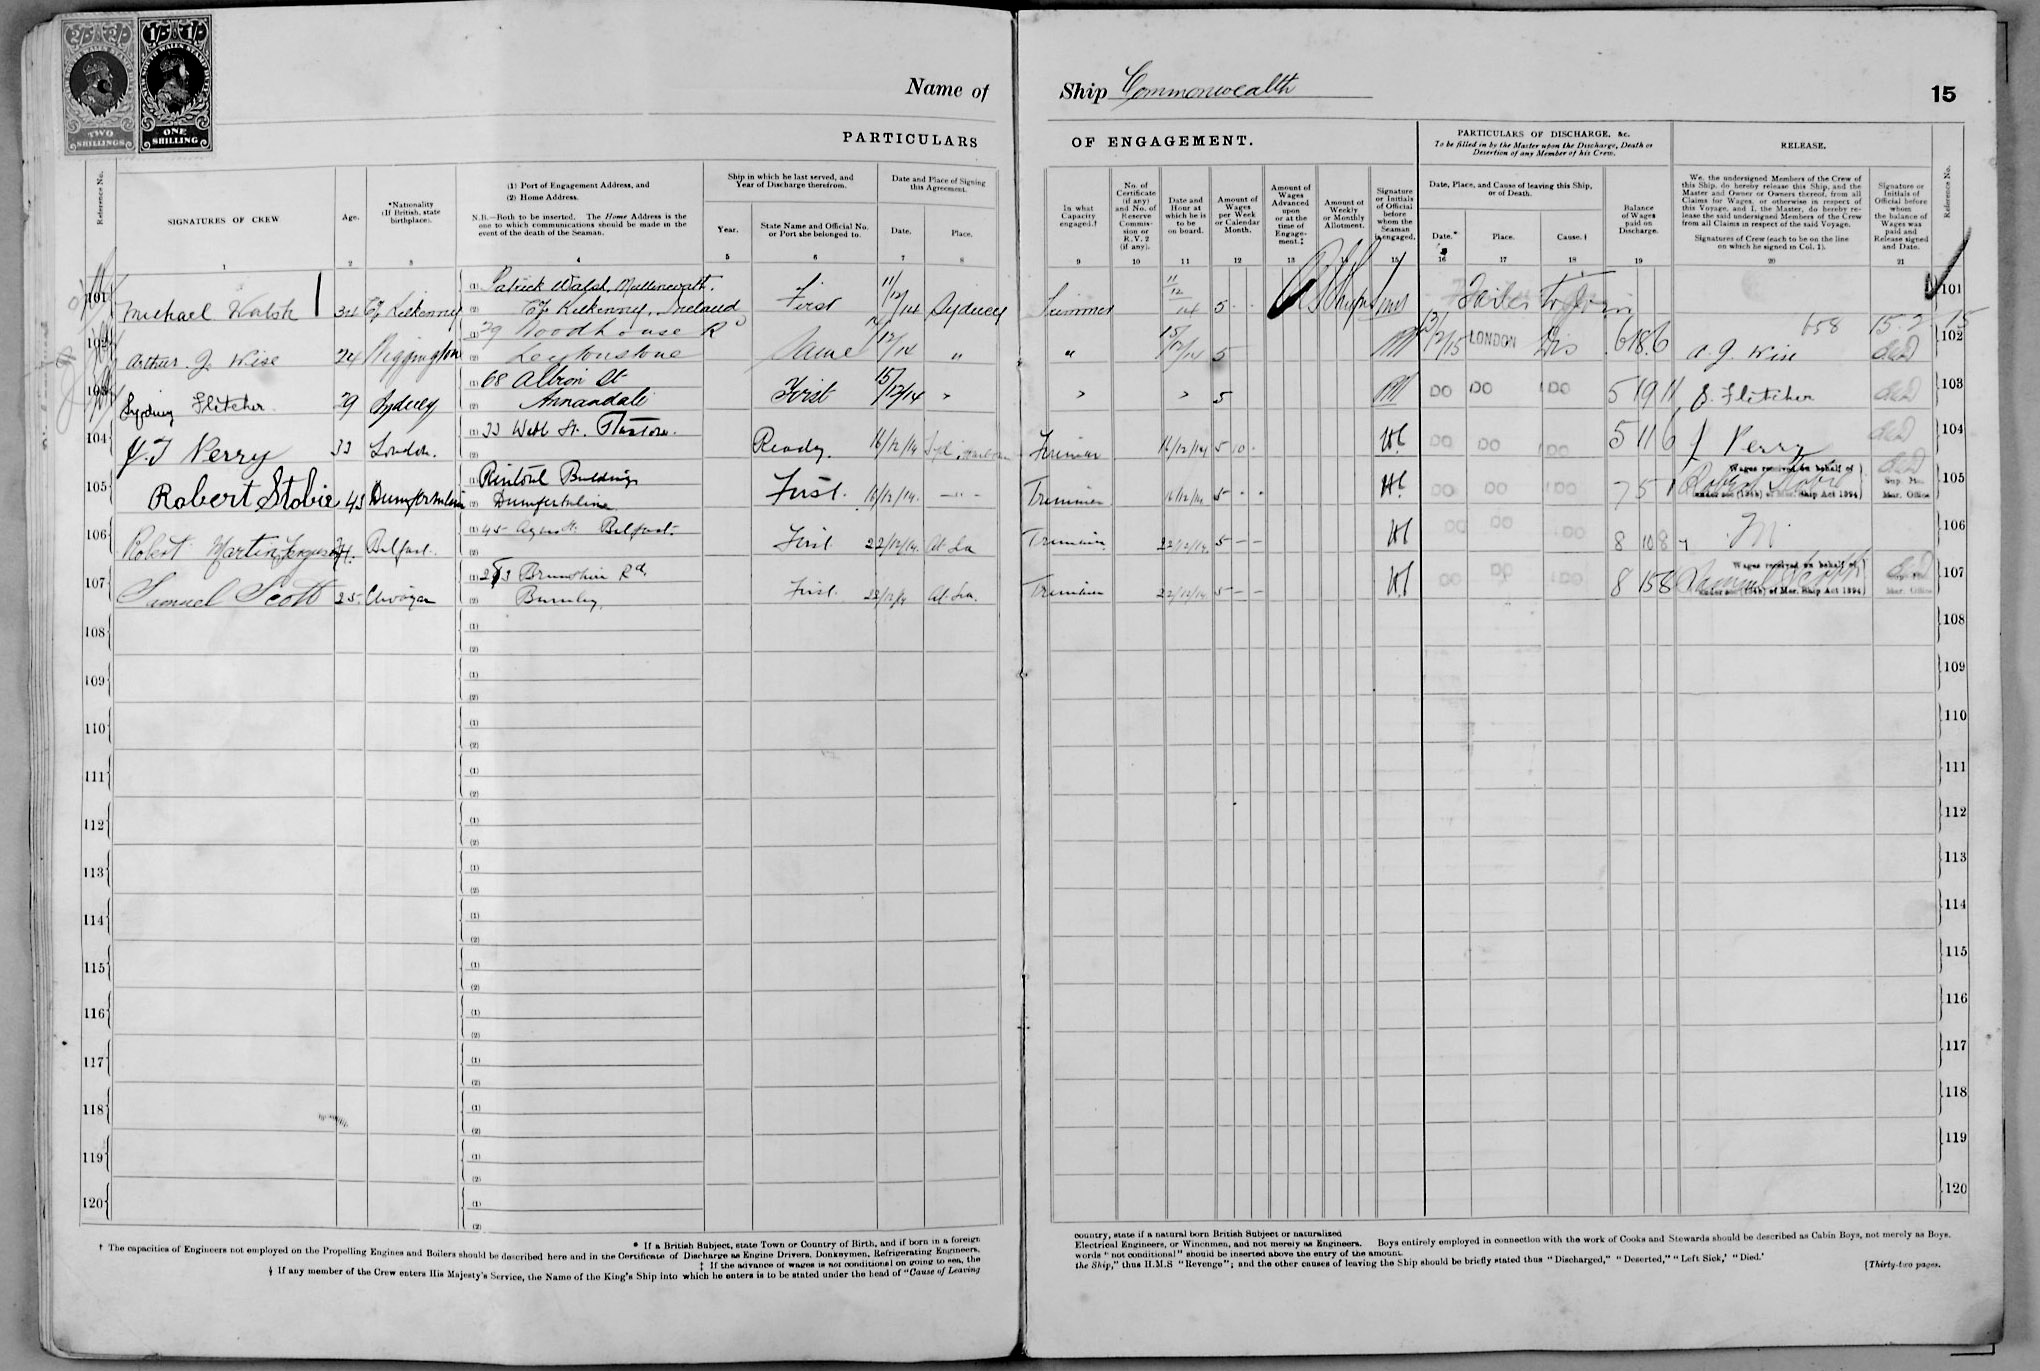 2/- 2/-
TWO
SHILLINGS
1/- 1/-
NEW SOUTH WALES STAMP DUTY
ONE
SHILLING
Name of Ship Commonwealth
15
PARTICULARS OF ENGAGEMENT.
PARTICULARS OF DISCHARGE, &c.
To be filled in by the Master upon the Discharge, Death or
Desertion of any Member of his Crew.
RELEASE.
Reference No.
SIGNATURES OF CREW.
Age.
*Nationality
(If British, state
birthplace).
(1) Port of Engagement Address, and
(2) Home Address.
N.B.—Both to be inserted. The Home Address is the
one to which communications should be made in the
event of the death of the Seaman.
Ship in which he last served, and
Year of Discharge therefrom.
Year.
State Name and Official No.
or Port she belonged to.
Date and Place of Signing
this Agreement.
Date.
Place.
In what
Capacity
engaged.†
No. of
Certificate
(if any)
and No. of
Reserve
Commis-
sion or
R.V. 2
(if any).
Date and
Hour at
which he is
to be
on board.
Amount of
Wages
per Week
or Calendar
Month.
Amount of
Wages
Advanced
upon
or at the
time of
Engage-
ment.‡
Amount of
Weekly
or Monthly
Allotment.
Signature
or Initials
of Official
before
whom the
Seaman
is engaged.
Date, Place, and Cause of leaving this Ship,
or of Death.
Date.*
Place.
Cause.†
Balance
of Wages
paid on
Discharge.
We, the undersigned Members of the Crew of
this Ship, do hereby release this Ship, and the
Master and Owner or Owners thereof, from all
Claims for Wages, or otherwise in respect of
this Voyage, and I, the Master, do hereby re-
lease the said undersigned Members of the Crew
from all Claims in respect of the said Voyage.
Signatures of Crew (each to be on the line
on which he signed in Col. 1).
Signature or
Initials of
Official before
whom
the balance of
Wages was
paid and
Release signed
and Date.
Reference No.
1 2 3 4 5 6 7 8 9 10 11 12 13 14 15 16 17 18 19 20 21
101 Michael Walsh 34 Co Kilkenny (1) Patrick Walsh, Mullenwath. (2) Co Kilkenny, Ireland First 11/12/14 Sydney Trimmer 11/12/14 5 - - Failed to Join 101
102 Arthur. J. Wise 24 (1) 79 Woodhouse Rd (2) Leytonstone Same 12/14 " " 15/12/14 5 13/2/15 LONDON Dis 6 18 6 658 A. J. Wise 15.2.15 102
103 Sydney Fletcher 29 Sydney (1) 68 Albion St (2) Annandale First 15/12/14 " " " 5 DO DO DO 5 19 11 S. Fletcher 103
104 J. T Perry 33 London. (1) 33 Webb St. (2) 16/12/14 Fireman 16/12/14 5 10 - DO DO DO 5 11 6 J Perry 104
105 Robert Stobie 45 Dumfermline (1) Rintoul Buildings (2) Dumfermline First. 16/12/14. - " - Trimmer 16/12/14 5 - - DO DO DO 7 5 1 Wages received on behalf of Robert Stobie under sec (1945) of Mer. Ship Act 1894 Sup. M. Mer. Office 105
106 Robert Martin Ferguson Belfast. (1) 45 Agnes St. Belfast. (2) First 22/12/14. At Sea Trimmer 22/12/14 5 - - DO DO DO 8 10 8 106
107 Samuel Scott 25. (1) 253 Brunshaw Rd. (2) Burnley. First. 22/12/14 At Sea. Trimmer 22/12/14 5 - - DO DO DO 8 15 8 Wages received on behalf of Samuel Scott under sec of Mer. Ship Act 1894 Mer. Office 107
108 (1) (2) 108
109 (1) (2) 109
110 (1) (2) 110
111 (1) (2) 111
112 (1) (2) 112
113 (1) (2) 113
114 (1) (2) 114
115 (1) (2) 115
116 (1) (2) 116
117 (1) (2) 117
118 (1) (2) 118
119 (1) (2) 119
120 (1) (2) 120
* If a British Subject, state Town or Country of Birth, and if born in a foreign country, state if a natural born British Subject or naturalized
† The capacities of Engineers not employed on the Propelling Engines and Boilers should be described here and in the Certificate of Discharge as Engine Drivers, Donkeymen, Refrigerating Engineers, Electrical Engineers, or Winchmen, and not merely as Engineers. Boys entirely employed in connection with the work of Cooks and Stewards should be described as Cabin Boys, not merely as Boys.
‡ If the advance of wages is not conditional on going to sea, the words "not conditional" should be inserted above the entry of the amount.
§ If any member of the Crew enters His Majesty's Service, the Name of the King's Ship into which he enters is to be stated under the head of "Cause of Leaving the Ship," thus H.M.S "Revenge"; and the other causes of leaving the Ship should be briefly stated thus "Discharged," "Deserted," "Left Sick,' "Died.'
[Thirty-two pages.